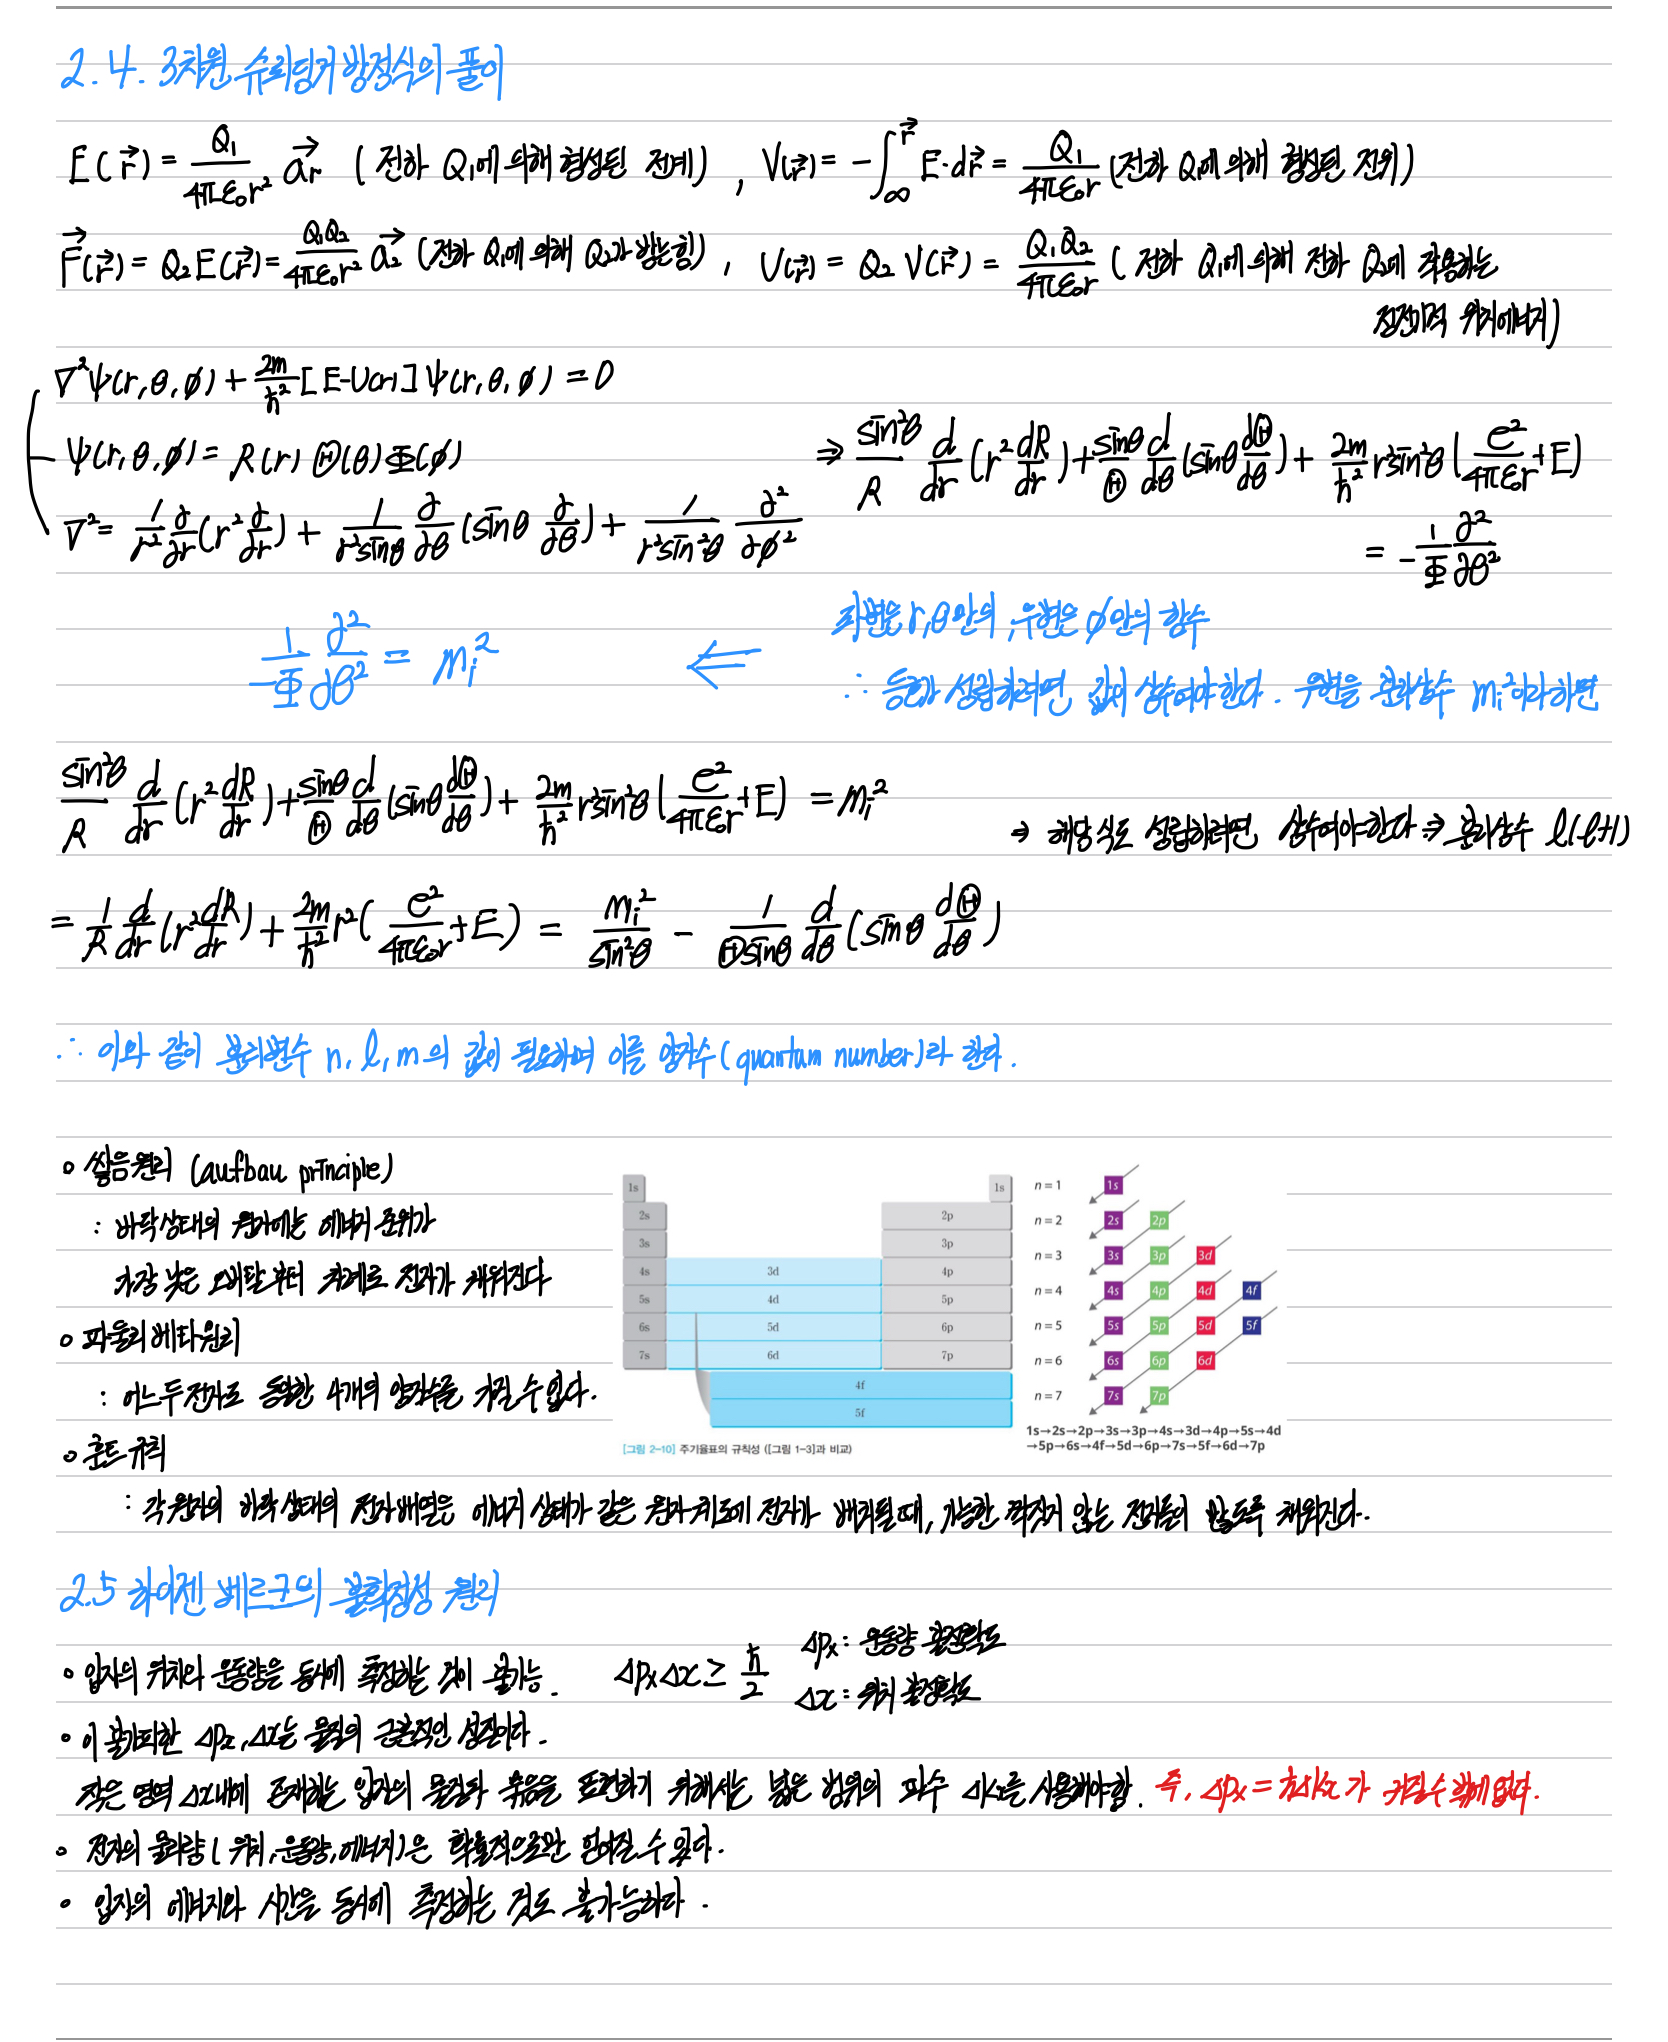 2.4. 3차원 슈뢰딩거 방정식의 풀이
E(r⃗) = Q₁/4πε₀r² a⃗r (전하 Q₁에 의해 형성된 전계), V(r⃗) = -∫∞^r⃗ E·dr⃗ = Q₁/4πε₀r (전하 Q₁에 의해 형성된 전위)
F⃗(r⃗) = Q₂E(r⃗) = Q₁Q₂/4πε₀r² a⃗₂ (전하 Q₁에 의해 Q₂가 받는힘), U(r⃗) = Q₂V(r⃗) = Q₁Q₂/4πε₀r (전하 Q₁에 의해 전하 Q₂에 작용하는
정전기적 위치에너지)
∇²ψ(r,θ,φ) + 2m/ħ² [E-U(r)]ψ(r,θ,φ) = 0
ψ(r,θ,φ) = R(r)Θ(θ)Φ(φ)
⇒ sin²θ/R d/dr(r² dR/dr) + sinθ/Θ d/dθ(sinθ dΘ/dθ) + 2m/ħ² r²sin²θ(e²/4πε₀r + E)
∇² = 1/r² ∂/∂r(r² ∂/∂r) + 1/r²sinθ ∂/∂θ(sinθ ∂/∂θ) + 1/r²sin²θ ∂²/∂φ²
= -1/Φ ∂²/∂θ²
좌변은 r,θ만의, 우변은 φ만의 함수
-1/Φ ∂²/∂θ² = mᵢ² ⇐
∴ 등호가 성립하려면 값이 상수여야한다. 우변을 분리상수 mᵢ²이라하면
sin²θ/R d/dr(r² dR/dr) + sinθ/Θ d/dθ(sinθ dΘ/dθ) + 2m/ħ² r²sin²θ(e²/4πε₀r + E) = mᵢ²
⇒ 해당식도 성립하려면 상수여야한다 ⇒ 분리상수 l(l+1)
= 1/R d/dr(r² dR/dr) + 2m/ħ² r²(e²/4πε₀r + E) = mᵢ²/sin²θ - 1/Θsinθ d/dθ(sinθ dΘ/dθ)
∴ 이와 같이 분리변수 n, l, m의 값이 필요하며 이를 양자수(quantum number)라 한다.
∘ 쌓음원리 (aufbau principle)
: 바닥상태의 원자에는 에너지 준위가
가장 낮은 오비탈부터 차례로 전자가 채워진다
∘ 파울리 베타원리
: 어느 두 전자도 동일한 4개의 양자수를 가질 수 없다.
∘ 훈트 규칙
1s 1s
2s 2p
3s 3p
4s 3d 4p
5s 4d 5p
6s 5d 6p
7s 6d 7p
4f
5f
[그림 2-10] 주기율표의 규칙성 ([그림 1-3]과 비교)
n = 1 1s
n = 2 2s 2p
n = 3 3s 3p 3d
n = 4 4s 4p 4d 4f
n = 5 5s 5p 5d 5f
n = 6 6s 6p 6d
n = 7 7s 7p
1s→2s→2p→3s→3p→4s→3d→4p→5s→4d
→5p→6s→4f→5d→6p→7s→5f→6d→7p
: 각 원자의 바닥상태의 전자배열은 에너지 상태가 같은 원자궤도에 전자가 배치될 때, 가능한 짝짓지 않는 전자들이 많도록 채워진다.
2.5 하이젠베르크의 불확정성 원리
∘ 입자의 위치와 운동량은 동시에 측정하는 것이 불가능. Δpx Δx ≥ ħ/2
Δpx : 운동량 불정확도
Δx : 위치 불정확도
∘ 이 불가피한 Δpx, Δx는 물질의 근본적인 성질이다.
작은 영역 Δx내에 존재하는 입자의 물질파 묶음을 표현하기 위해서는 넓은 범위의 파수 Δkx를 사용해야함. 즉, Δpx = ħΔkx가 커질수밖에없다.
∘ 전자의 물리량(위치,운동량,에너지)은 확률적으로만 얻어질 수 있다.
∘ 입자의 에너지와 시간을 동시에 측정하는 것도 불가능하다.